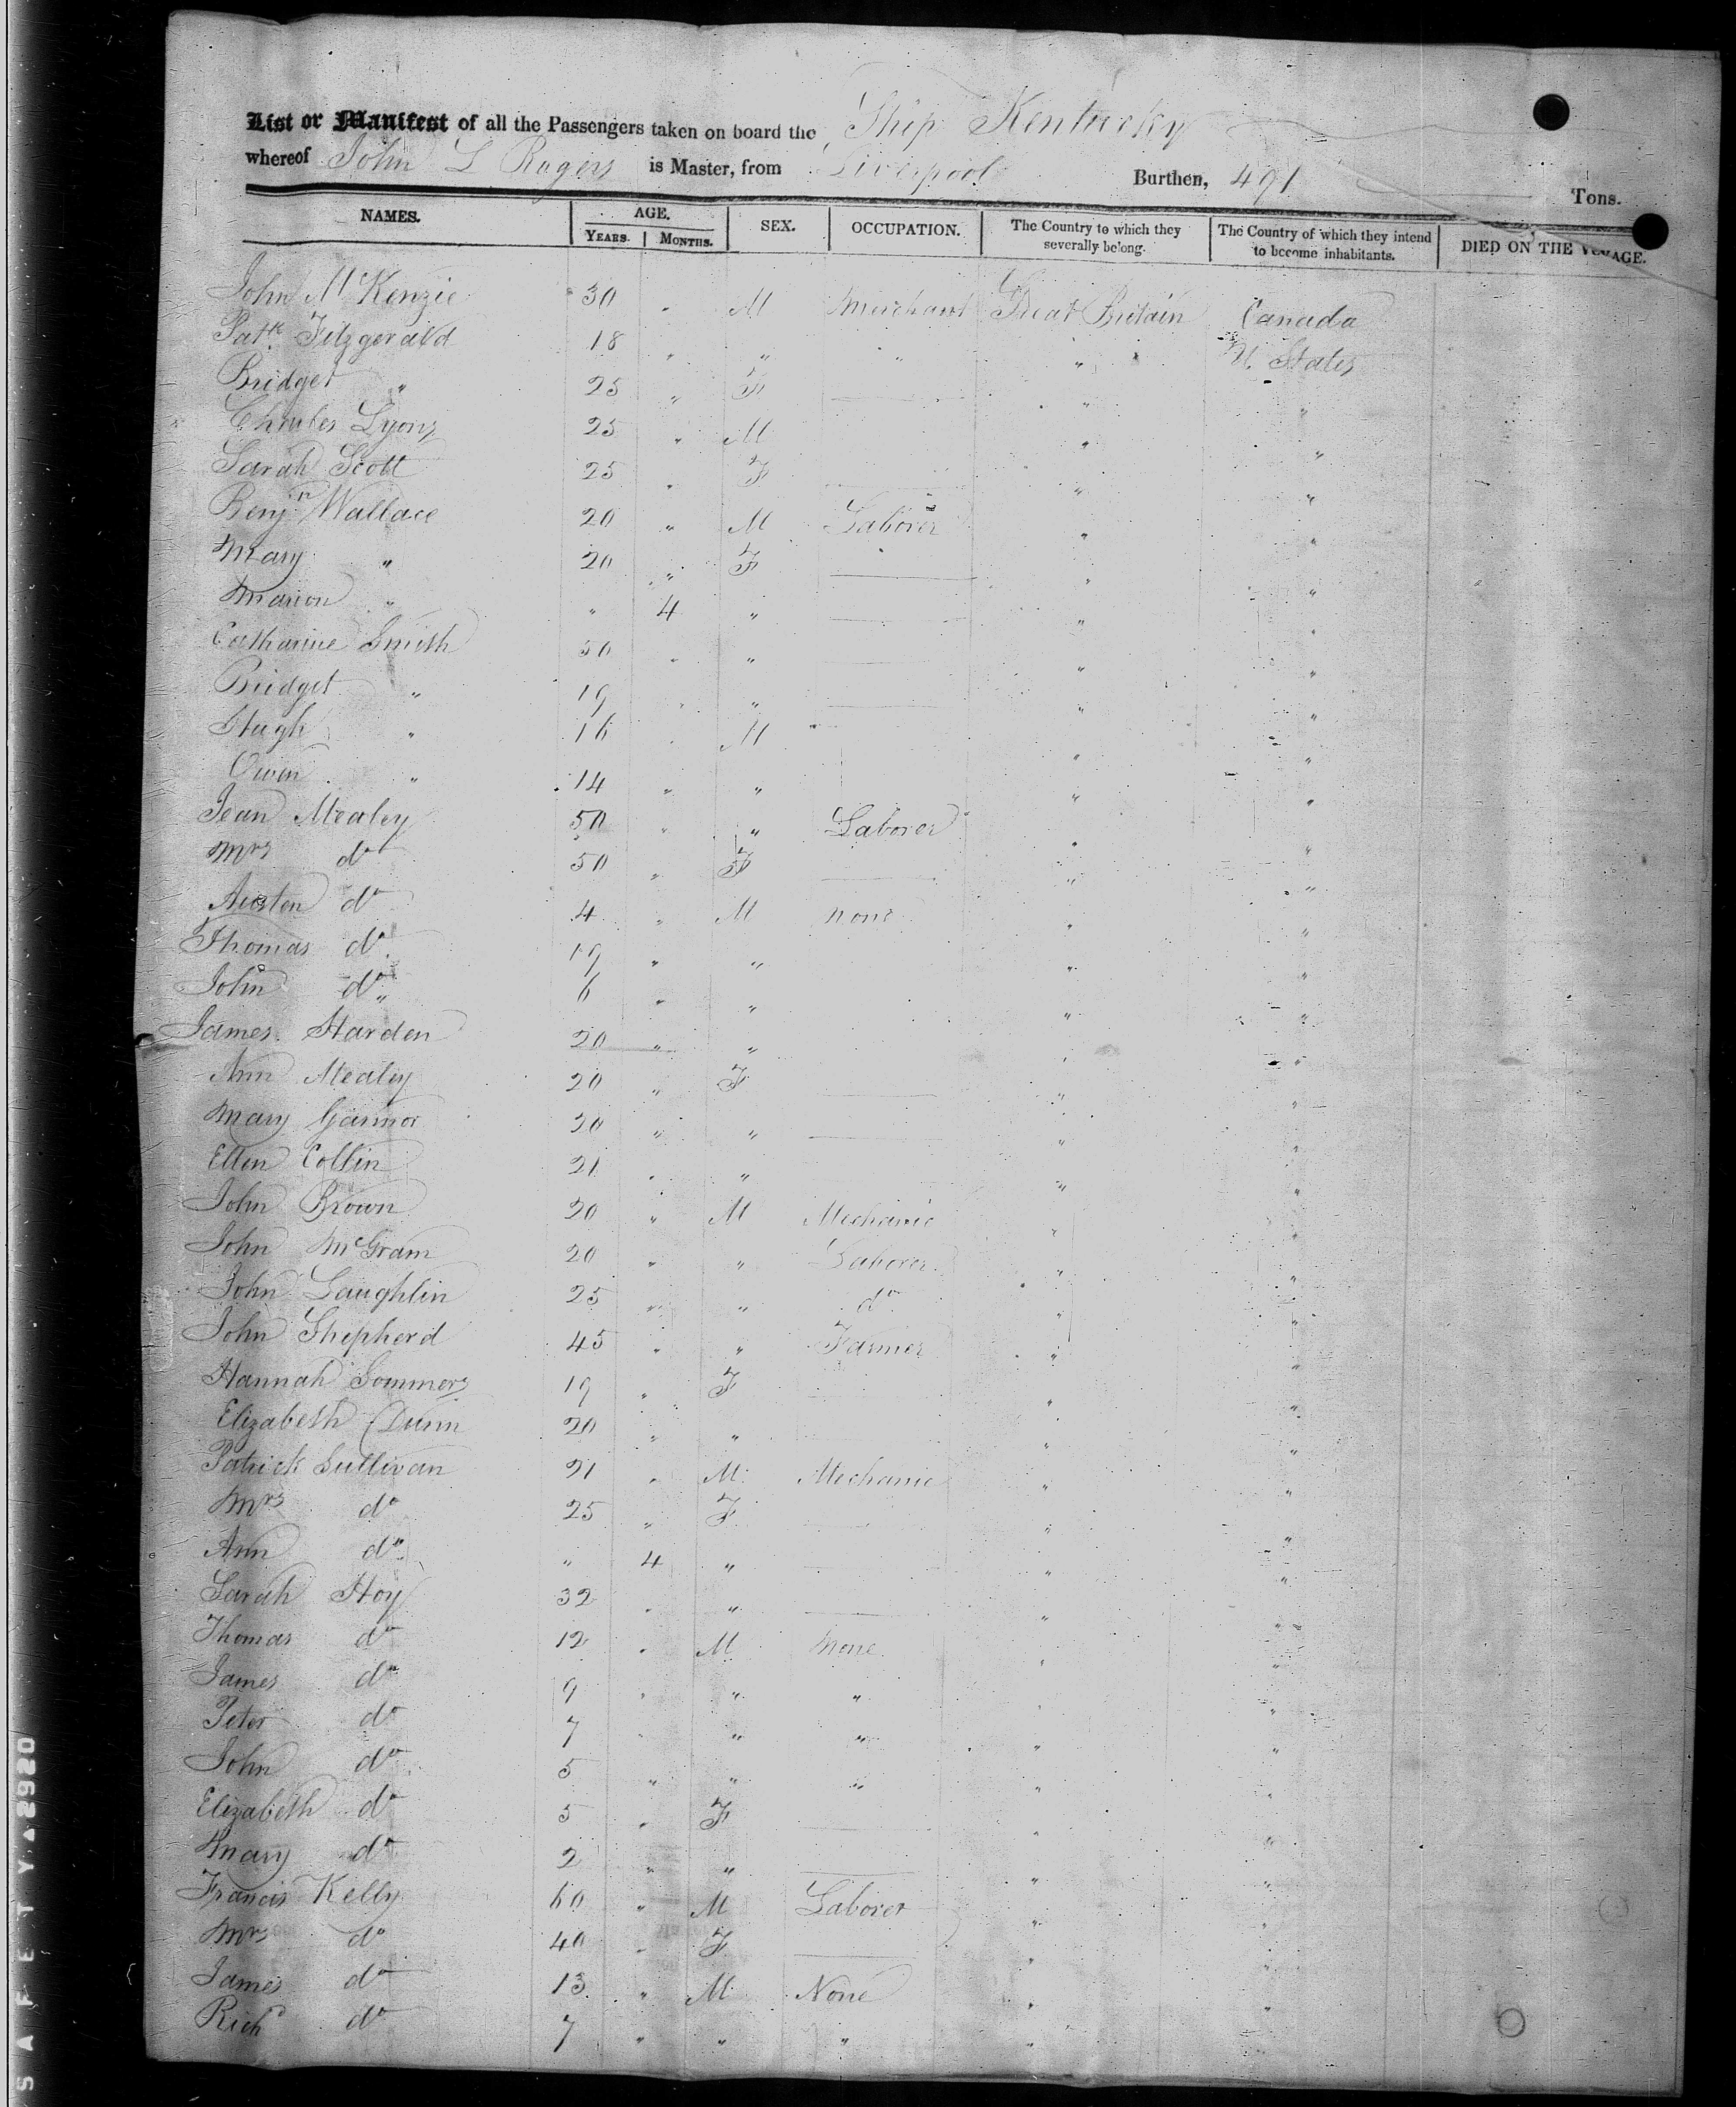 List or Manifest of all the Passengers taken on board the Ship Kentucky
whereof John L Rogers is Master, from Liverpool Burthen, 491 Tons.
NAMES. AGE. SEX. OCCUPATION. The Country to which they severally belong. The Country of which they intend to become inhabitants. DIED ON THE VOYAGE.
YEARS. MONTHS.
John McKenzie 30 " M Merchant Great Britain Canada
Patk Fitzgerald 18 " " " " U. States
Bridget " 25 " F " "
Charles Lyons 25 " M " "
Sarah Scott 25 " F " "
Benjn Wallace 20 " M Laborer " "
Mary " 20 " F " "
Marion " " 4 " " "
Catharine Smith 50 " " " "
Bridget " 19 " " " "
Hugh " 16 " M " "
Owen " 14 " " " "
Jean Mealey 50 " " Laborer " "
Mrs do 50 " F " "
Austen do 4 " M none " "
Thomas do 19 " " " "
John do " 6 " " " "
James Harden 20 " " " "
Ann Mealey 20 " F " "
Mary Gannor 20 " " " "
Ellen Collin 21 " " " "
John Brown 20 " M Mechanic " "
John McGram 20 " " Laborer " "
John Laughlin 25 " " do " "
John Shepherd 45 " " Farmer " "
Hannah Sommers 19 " F " "
Elizabeth Dunn 20 " " " "
Patrick Sullivan 21 " M Mechanic " "
Mrs do 25 " F " "
Ann do " 4 " " "
Sarah Hoy 32 " " " "
Thomas do 12 " M None " "
James do 9 " " " " "
Peter do 7 " " " " "
John do 5 " " " " "
Elizabeth do 5 " F " "
Mary do 2 " " " "
Francis Kelly 60 " M Laborer " "
Mrs do 40 " F " "
James do 13 " M None " "
Richd do 7 " " " "
SAFETY 2920